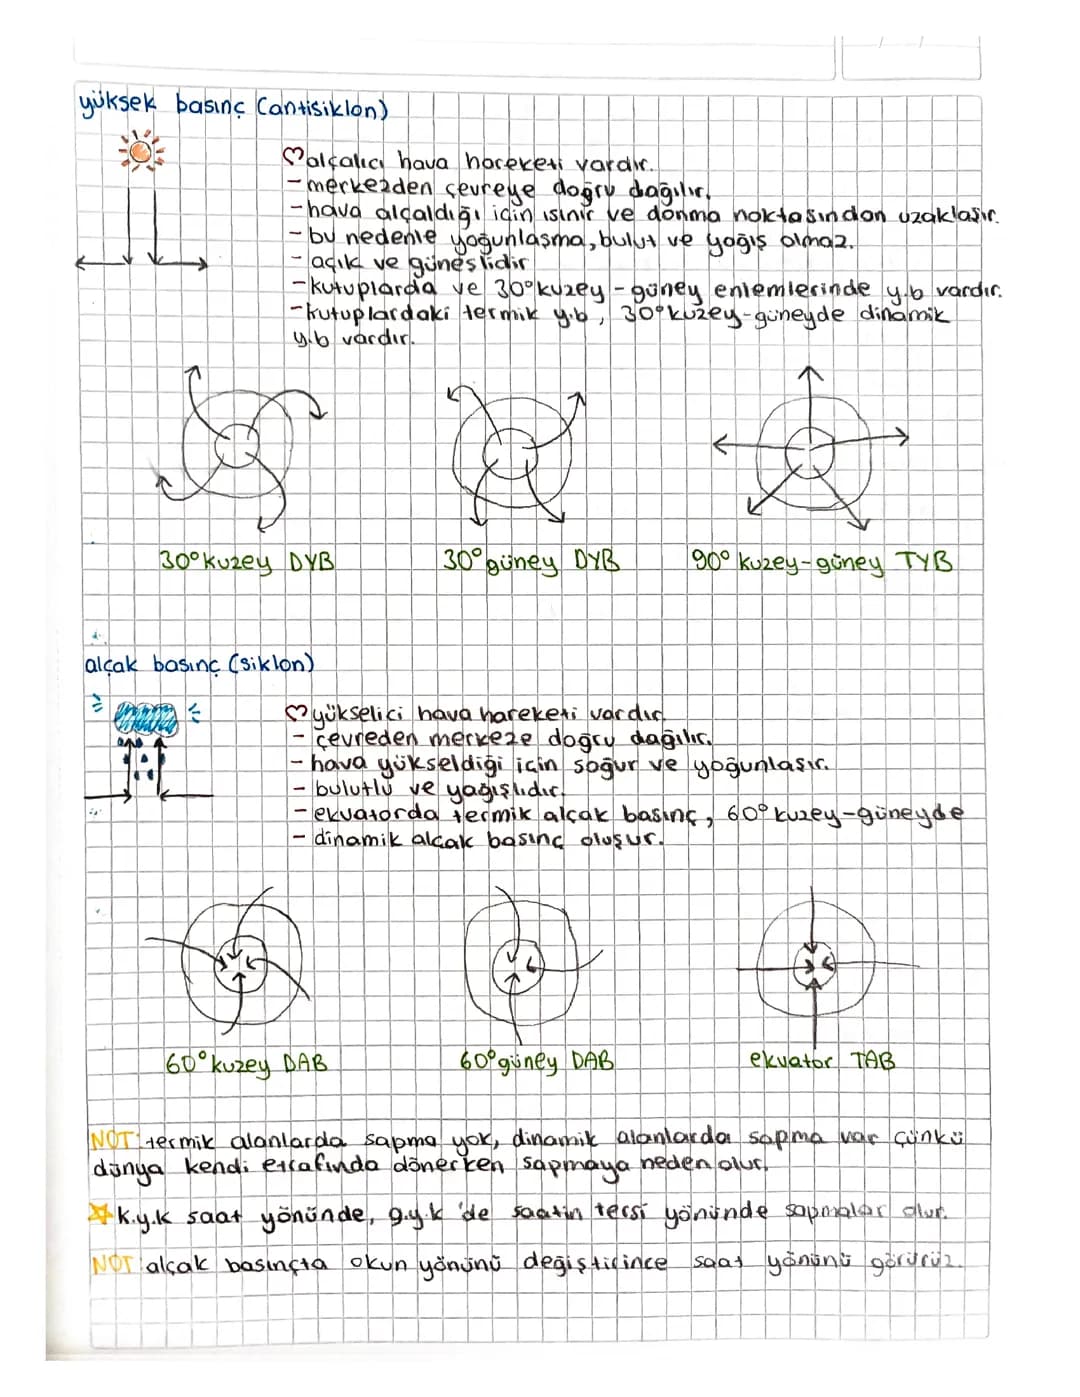 yüksek basınç (antisiklon)
♡alçalıcı hava hareketi vardır.
-merkezden çevreye doğru dağılır.
-hava alçaldığı için ısınır ve donma noktasından uzaklaşır.
-bu nedenle yoğunlaşma, bulut ve yağış olmaz.
-açık ve güneşlidir
-kutuplarda ve 30° kuzey-güney enlemlerinde y.b vardır.
-kutuplardaki termik y.b, 30° kuzey-güneyde dinamik
y.b vardır.
30° kuzey DYB
30° güney DYB
90° kuzey-güney TYB
alçak basınç (siklon)
♡yükselici hava hareketi vardır
- çevreden merkeze doğru dağılır.
- hava yükseldiği için soğur ve yoğunlaşır.
- bulutlu ve yağışlıdır.
-ekvatorda termik alçak basınç, 60° kuzey-güneyde
- dinamik alçak basınç oluşur.
60° kuzey DAB
60° güney DAB
ekvator TAB
NOT: termik alanlarda sapma yok, dinamik alanlarda sapma var çünkü
dünya kendi etrafında dönerken sapmaya neden olur.
☆ k.y.k saat yönünde, g.y.k 'de saatin tersi yönünde sapmalar olur.
NOT: alçak basınçta okun yönünü değiştirince saat yönünü görürüz.